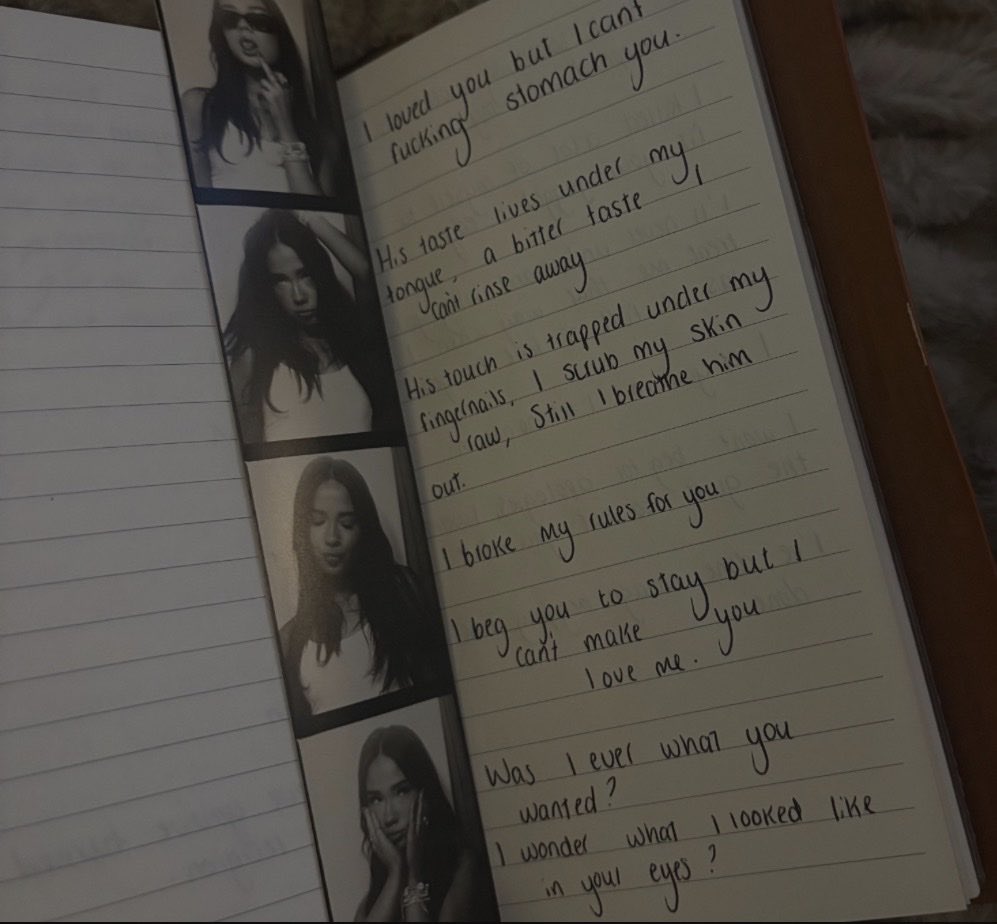 I loved you but I cant
fucking stomach you.
His taste lives under my
tongue, a bitter taste I
can't rinse away
His touch is trapped under my
fingernails, I scrub my skin
raw, Still I breathe him
out.
I broke my rules for you
I beg you to stay but I
can't make you
love me.
Was I ever what you
wanted?
I wonder what I looked like
in your eyes?